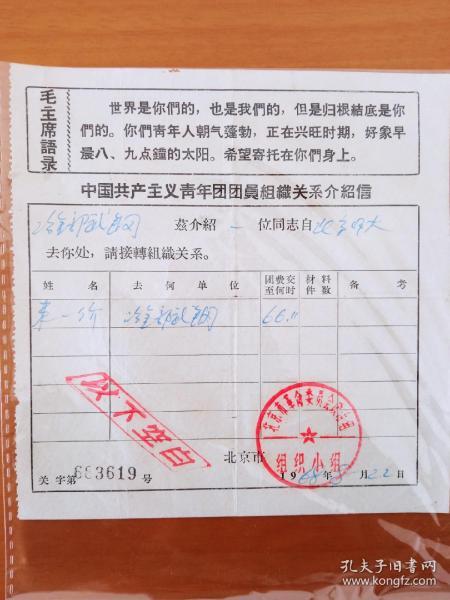 毛主席語录
世界是你們的，也是我們的，但是归根結底是你
們的。你們青年人朝气蓬勃，正在兴旺时期，好象早
晨八、九点鐘的太阳。希望寄托在你們身上。
中国共产主义青年团团員組織关系介紹信
茲介紹 一 位同志自
去你处，請接轉組織关系。
姓 名 去 何 单 位 团費交至何时 材料件数 备 考
66.11
以下空白
組织小组
北京市
关 字第683619号 1968年 月22日
孔夫子旧书网
www.kongfz.com